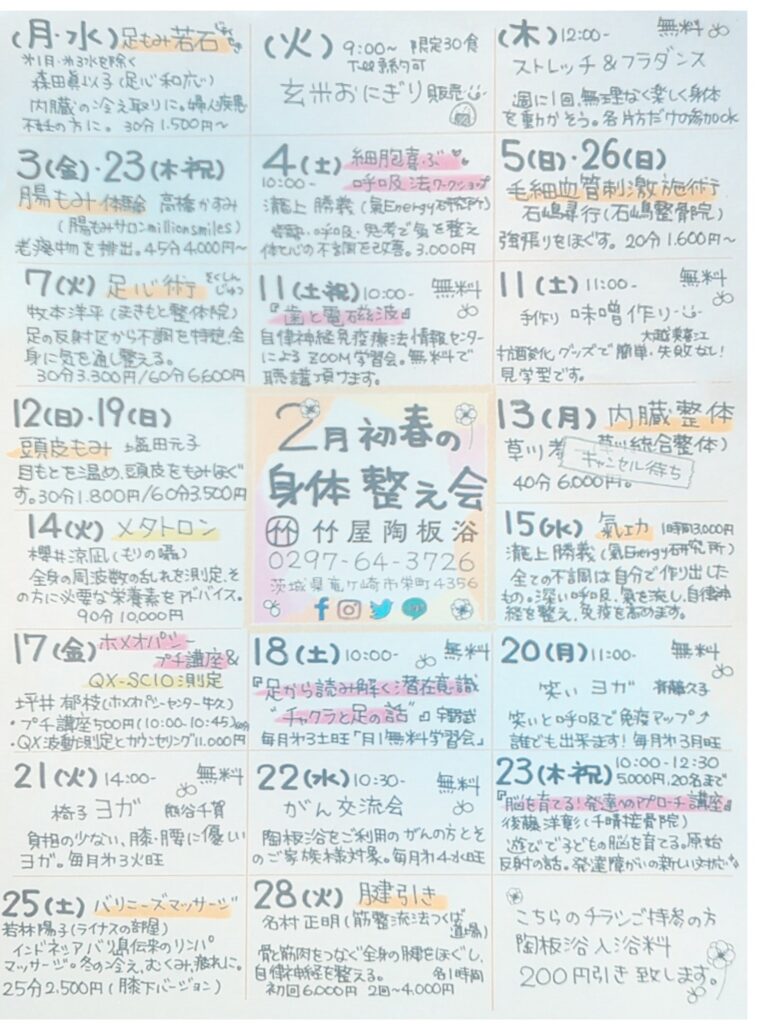 (月・水) 足もみ若石
※1月・※3水を除く
森田真以子(足心和癒)
内臓の冷え取りに。婦人疾患
不妊の方に。30分1.500円~
(火) 9:00~ 限定30食
玄米おにぎり販売
(木) 12:00- 無料
ストレッチ&フラダンス
週に1回、無理なく楽しく身体
を動かそう。各片方だけの参加OK
3(金)・23(木祝)
腸もみ体験会 高橋かすみ
(腸もみサロンmillionsmiles)
老廃物を排出。45分4.000円~
4(土) 細胞喜ぶ
10:00- 呼吸法ワークショップ
瀧上勝義(氣Energy研究所)
姿勢・呼吸・思考で気を整え
体と心の不調を改善。3.000円
5(日)・26(日)
毛細血管刺激施術
石嶋尋行(石嶋整骨院)
強張りをほぐす。20分1.600円~
7(火) 足心術 そくしんじゅつ
牧本洋平(まきもと整体院)
足の反射区から不調を特定、全
身に気を通し整える。
30分3.300円/60分6,600円
11(土祝) 10:00- 無料
『歯と電磁波』
自律神経免疫療法情報センター
によるZOOM学習会。無料で
聴講頂けます。
11(土) 11:00- 無料
手作り 味噌作り
大越美喜江
抗酸化グッズで簡単・失敗なし!
見学型です。
12(日)・19(日)
頭皮もみ 塩田元子
目もとを温め、頭皮をもみほぐ
す。30分1.800円/60分3,500円
2月初春の
身体整え会
竹 竹屋陶板浴
0297-64-3726
茨城県竜ケ崎市栄町4356
13(月) 内臓整体
草川 草川統合整体)
キャンセル待ち
40分6.000円。
14(火) メタトロン
櫻井涼凪(もりの囁)
全身の周波数の乱れを測定、そ
の方に必要な栄養素をアドバイス。
90分10,000円
15(水) 氣功 1時間3,000円
瀧上勝義(氣Energy研究所)
全ての不調は自分で作り出した
もの。深い呼吸、気を流し、自律神
経を整え、免疫を高めます。
17(金) ホメオパシー
プチ講座&
QX-SCIO測定
坪井郁枝(ホメオパシーセンター牛久)
・プチ講座500円(10:00-10:45)
・QX波動測定とカウンセリング11.000円
18(土) 10:00- 無料
『足から読み解く潜在意識
"チャクラと足の話"』 宇野武
毎月第3土旺「月1無料学習会」
20(月) 11:00- 無料
笑いヨガ 齊藤久子
笑いと呼吸で免疫アップ⤴
誰でも出来ます!毎月第3月旺
21(火) 14:00- 無料
椅子ヨガ 熊谷千賀
負担の少ない、膝・腰に優しい
ヨガ。毎月第3火旺
22(水) 10:30- 無料
がん交流会
陶板浴をご利用のがんの方とそ
のご家族様対象。毎月第4水旺
23(木祝) 10:00-12:30
5,000円、20名まで
『脳を育てる!発達へのアプローチ講座』
後藤洋彰(千晴接骨院)
遊びで子どもの脳を育てる。原始
反射の話。発達障がいの新しい対応
25(土) バリニーズマッサージ
若林陽子(ライナスの部屋)
インドネシアバリ島伝来のリンパ
マッサージ。冬の冷え、むくみ、疲れに。
25分2,500円(膝下バージョン)
28(火) 腱引き
名村正明(筋整流法つくば道場)
骨と筋肉をつなぐ全身の腱をほぐし、
自律神経を整える。 各1時間
初回6.000円 2回~4,000円
こちらのチラシご持参の方
陶板浴入浴料
200円引き致します。